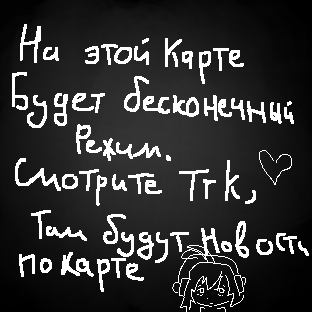 На этой Карте
Будет бесконечный
Режим.
Смотрите Trk,
Там будут Новости
по карте